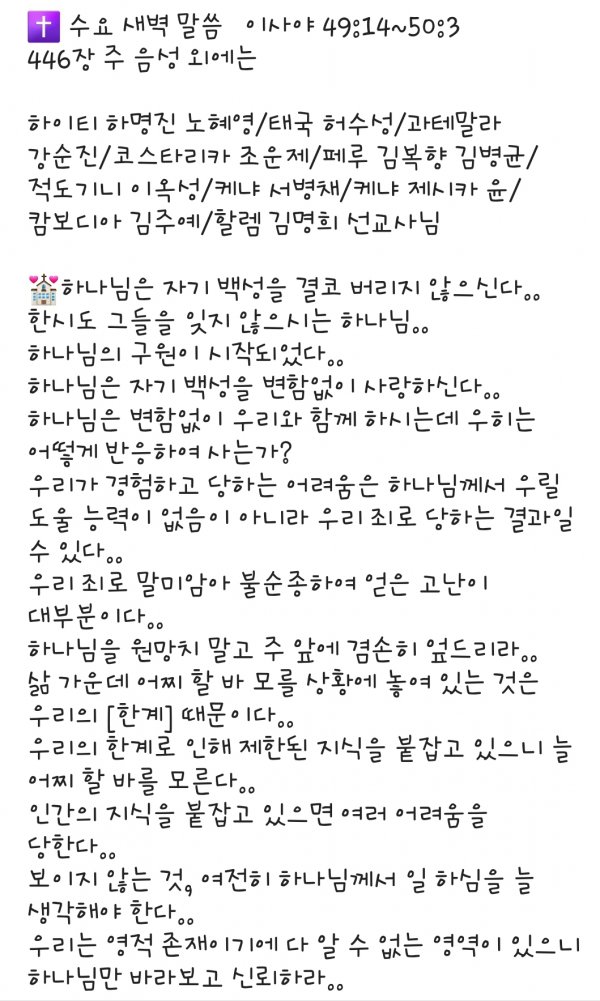 ✝️ 수요 새벽 말씀   이사야 49:14~50:3
446장 주 음성 외에는

하이티 하명진 노혜영/태국 허수성/과테말라
강순진/코스타리카 조운제/페루 김복향 김병균/
적도기니 이옥성/케냐 서병채/케냐 제시카 윤/
캄보디아 김주예/할렘 김명희 선교사님

💒하나님은 자기 백성을 결코 버리지 않으신다..
한시도 그들을 잊지 않으시는 하나님..
하나님의 구원이 시작되었다..
하나님은 자기 백성을 변함없이 사랑하신다..
하나님은 변함없이 우리와 함께 하시는데 우히는
어떻게 반응하여 사는가?
우리가 경험하고 당하는 어려움은 하나님께서 우릴
도울 능력이 없음이 아니라 우리 죄로 당하는 결과일
수 있다..
우리 죄로 말미암아 불순종하여 얻은 고난이
대부분이다..
하나님을 원망치 말고 주 앞에 겸손히 엎드리라..
삶 가운데 어찌 할 바 모를 상황에 놓여 있는 것은
우리의 [한계] 때문이다..
우리의 한계로 인해 제한된 지식을 붙잡고 있으니 늘
어찌 할 바를 모른다..
인간의 지식을 붙잡고 있으면 여러 어려움을
당한다..
보이지 않는 것, 여전히 하나님께서 일 하심을 늘
생각해야 한다..
우리는 영적 존재이기에 다 알 수 없는 영역이 있으니
하나님만 바라보고 신뢰하라..